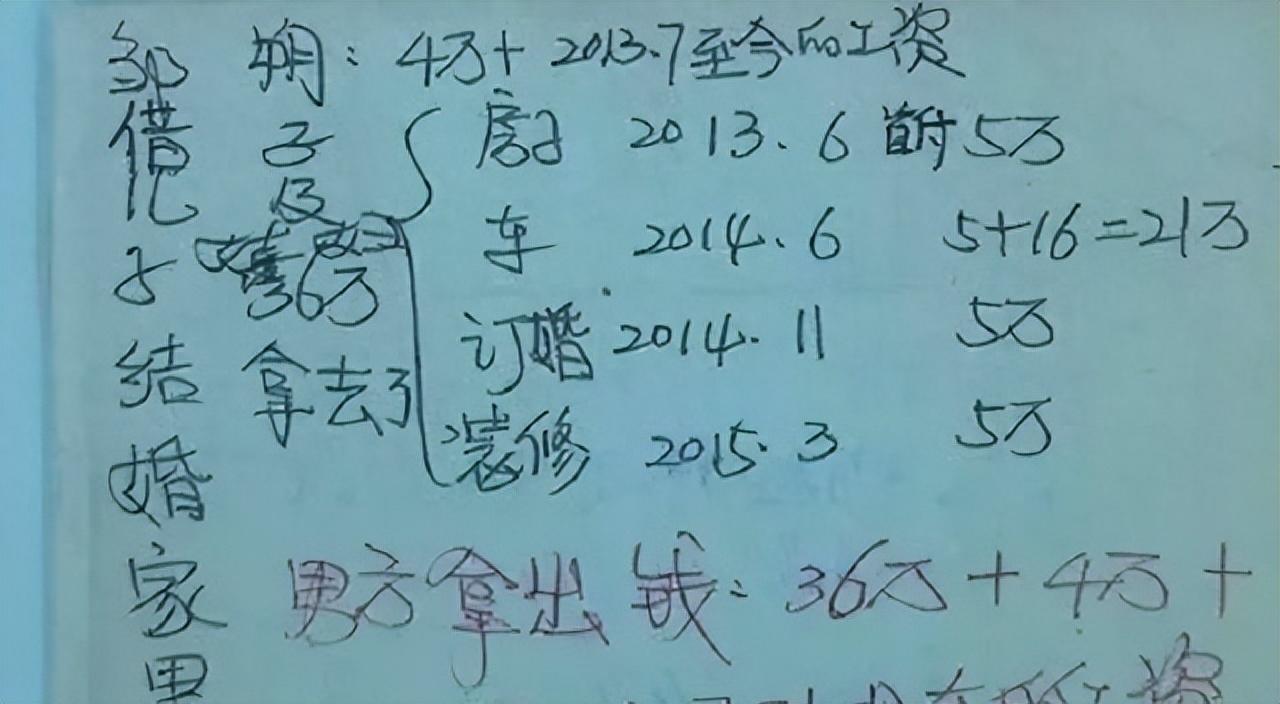 邹 朔：4万+2013.7至今的工资
房子 2013.6 首付 5万
车 2014.6 5+16=21万
订婚 2014.11 5万
装修 2015.3 5万
36万
拿去了
借
子结婚家里
男方拿出钱：36万+4万+
工资